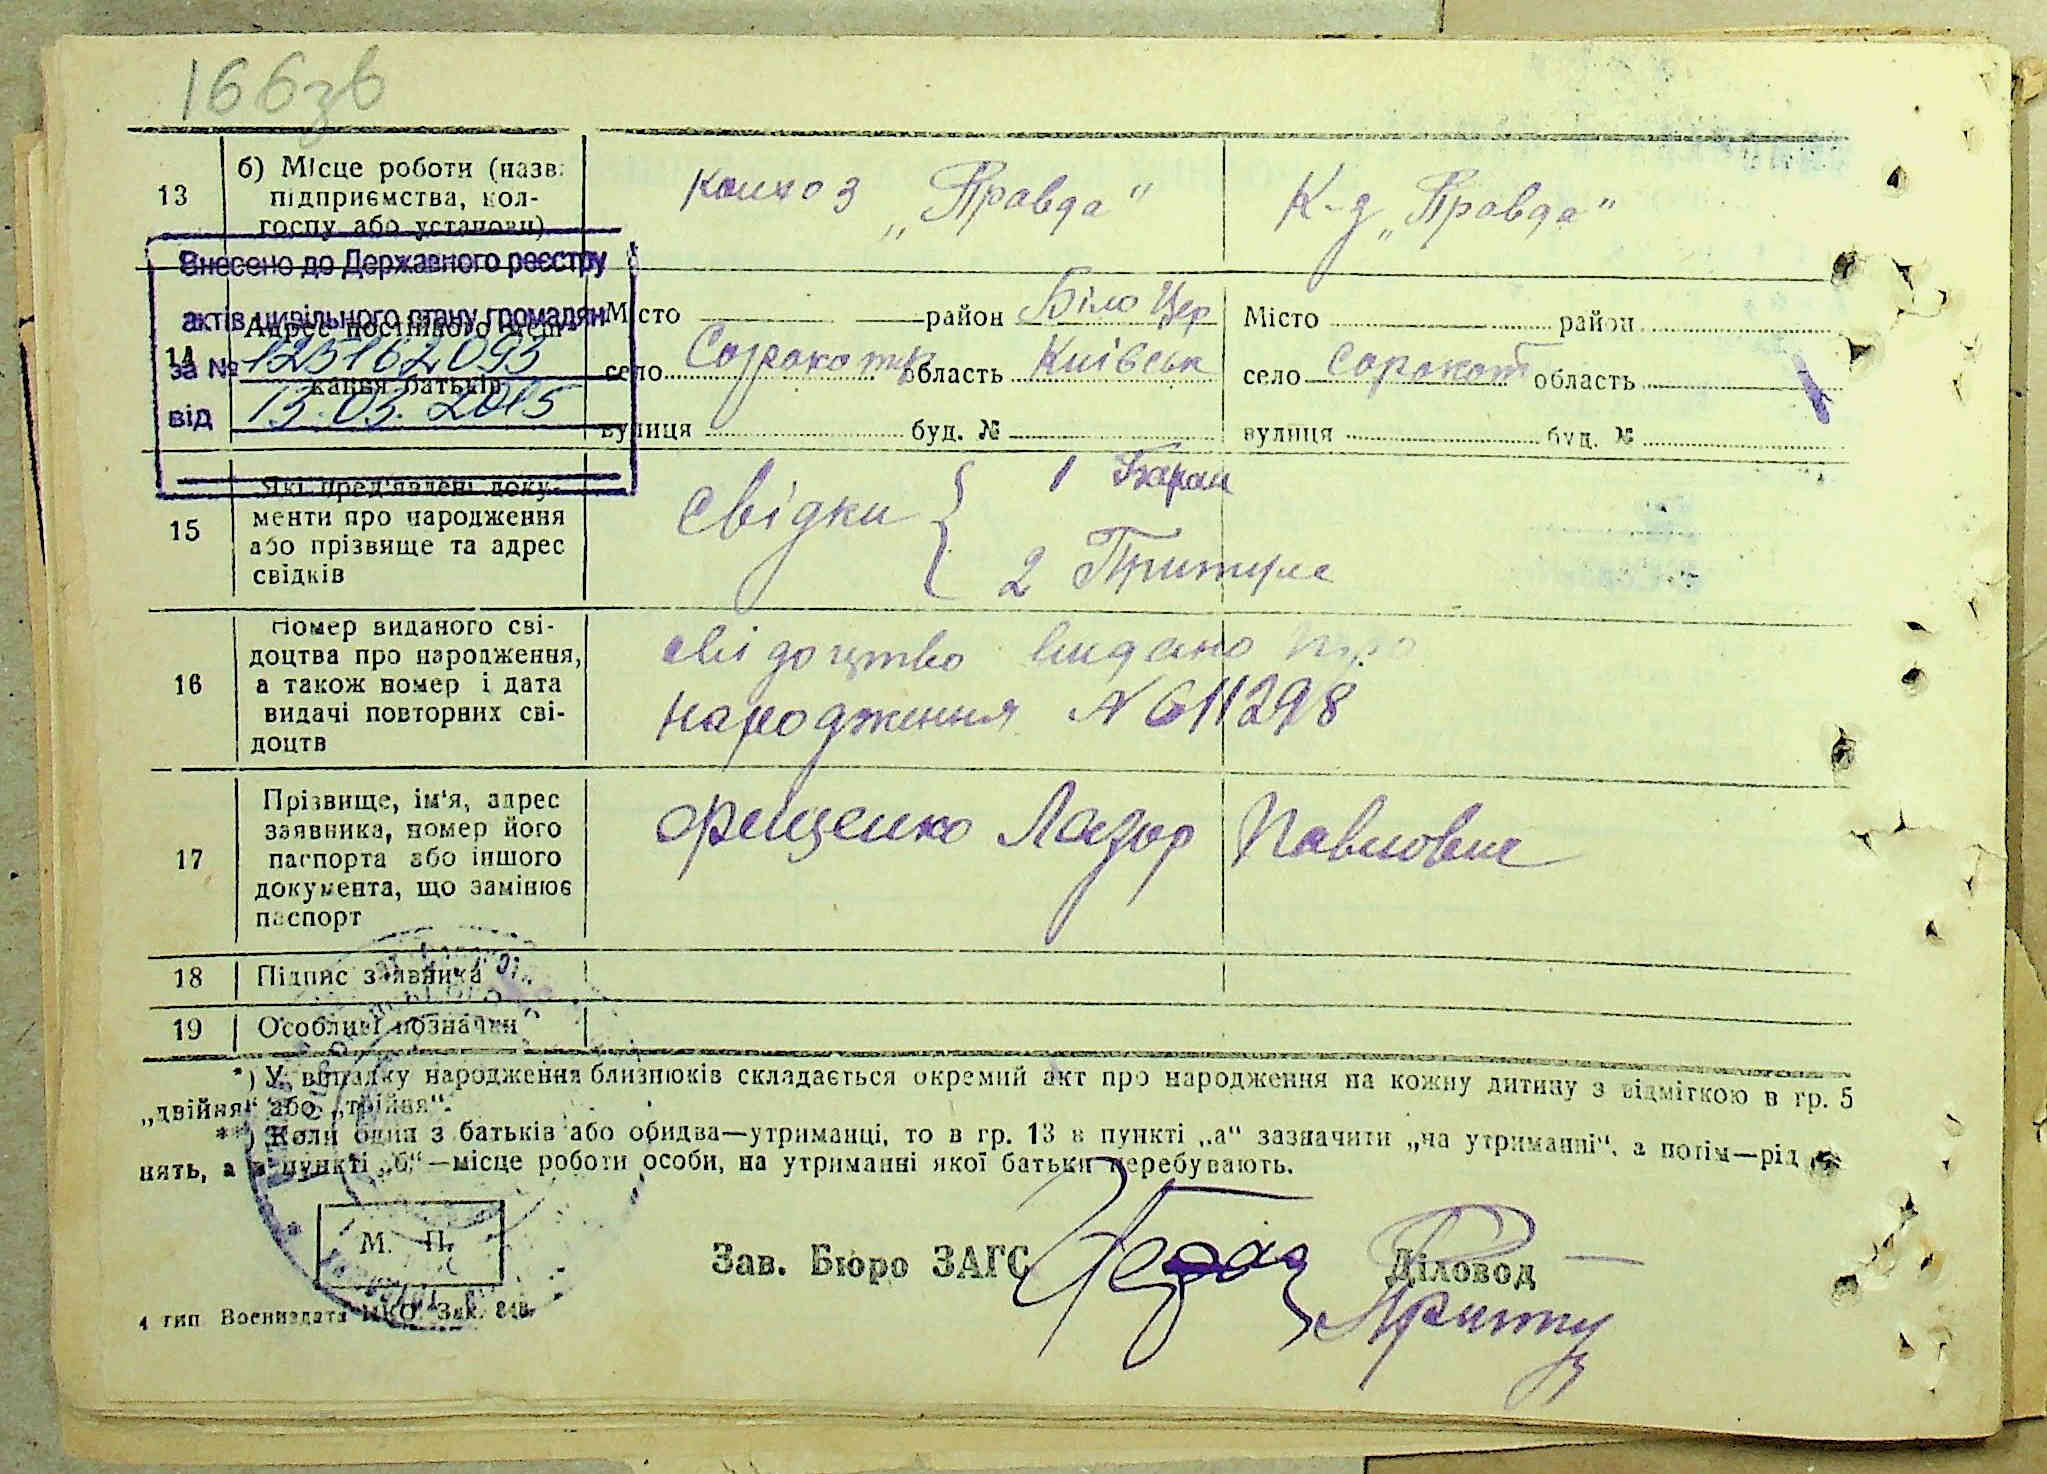 166зв
13
б) Місце роботи (назва
підприємства, кол-
госпу або установи)
колхоз „Правда“
К-д „Правда“
Внесено до Державного реєстру
актів цивільного стану громадян
за № 123162093
від 13.03.2015
14
Адрес постійного меш-
кання батьків
Місто район Біло Цер
село Сорокотяг область Київськ
вулиця буд. №
Місто район
село Сорокот область
вулиця буд. №
15
Які пред'явлені доку-
менти про народження
або прізвище та адрес
свідків
Свідки { 1 Баран
2 Притула
16
Номер виданого сві-
доцтва про народження,
а також номер і дата
видачі повторних сві-
доцтв
свідоцтво видано про
народження № 611298
17
Прізвище, ім'я, адрес
заявника, номер його
паспорта або іншого
документа, що замінює
паспорт
Орищенко Лазор Павлович
18
Підпис заявника
19
Особливі позначки
*) У випадку народження близнюків складається окремий акт про народження на кожну дитину з відміткою в гр. 5
„двійня“ або „трійня“.
**) Коли один з батьків або обидва—утриманці, то в гр. 13 в пункті „а“ зазначити „на утриманні“, а потім—рід
нять, а в пункті „б“—місце роботи особи, на утриманні якої батьки перебувають.
М. П.
Зав. Бюро ЗАГС
Діловод
Притул
4 тип Воениздата НКО. Зак. 848